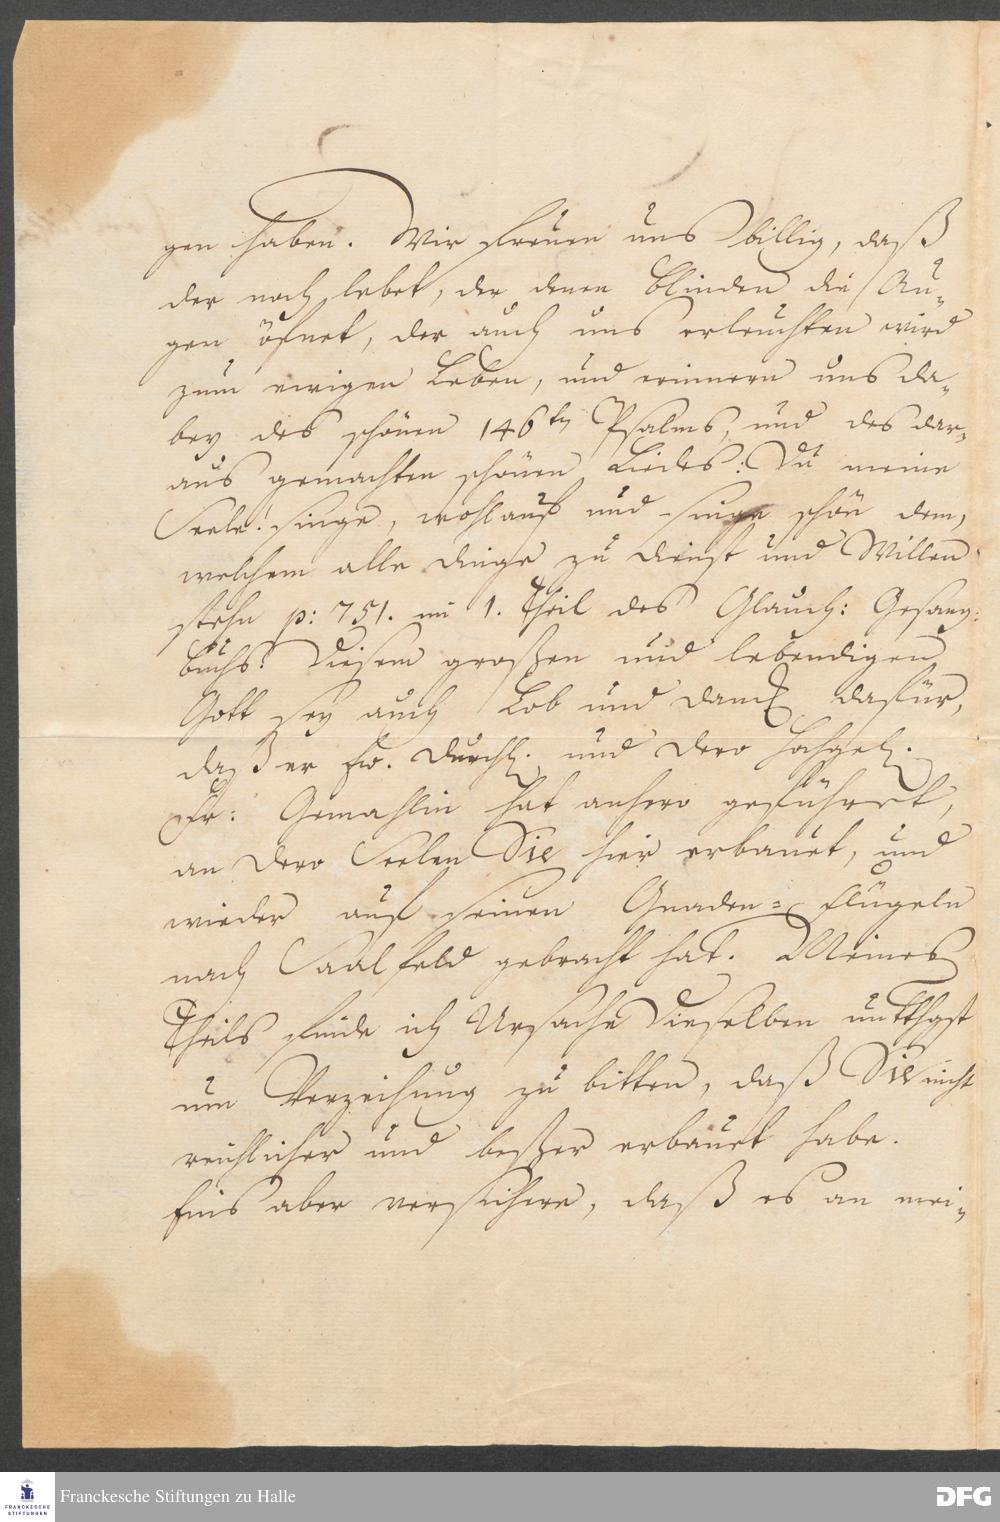 gen haben. Wir freuen uns billig, daß
der noch lebet, der denen Blinden die Au-
gen öfnet, der auch uns erleuchten wird
zum ewigen Leben, und erinnern uns da-
bey des schönen 146ten Psalms, und des dar-
aus gemachten schönen Liedes: Du meine
Seele! singe, wohlauf und singe schön dem,
welchem alle dinge zu dienst und Willen
stehn p: 751. im 1. Theil des Glauch: Gesang-
buchs. Diesem großen und lebendigen
Gott sey auch Lob und danck dafür,
daß er Ew. Durchl. und Dero Hochgel.
Fr: Gemahlin hat anhero geführet,
an Dero Seelen Sie hier erbauet, und
wieder auf seinen Gnaden=flügeln
nach Saalfeld gebracht hat. Meines
Theils finde ich Ursache Dieselben untthgst
um Verzeihung zu bitten, daß Sie nicht
reichlicher und beßer erbauet habe.
Eins aber versichere, daß es an mei-
Franckesche Stiftungen zu Halle
FRANCKESCHE
STIFTUNGEN
DFG